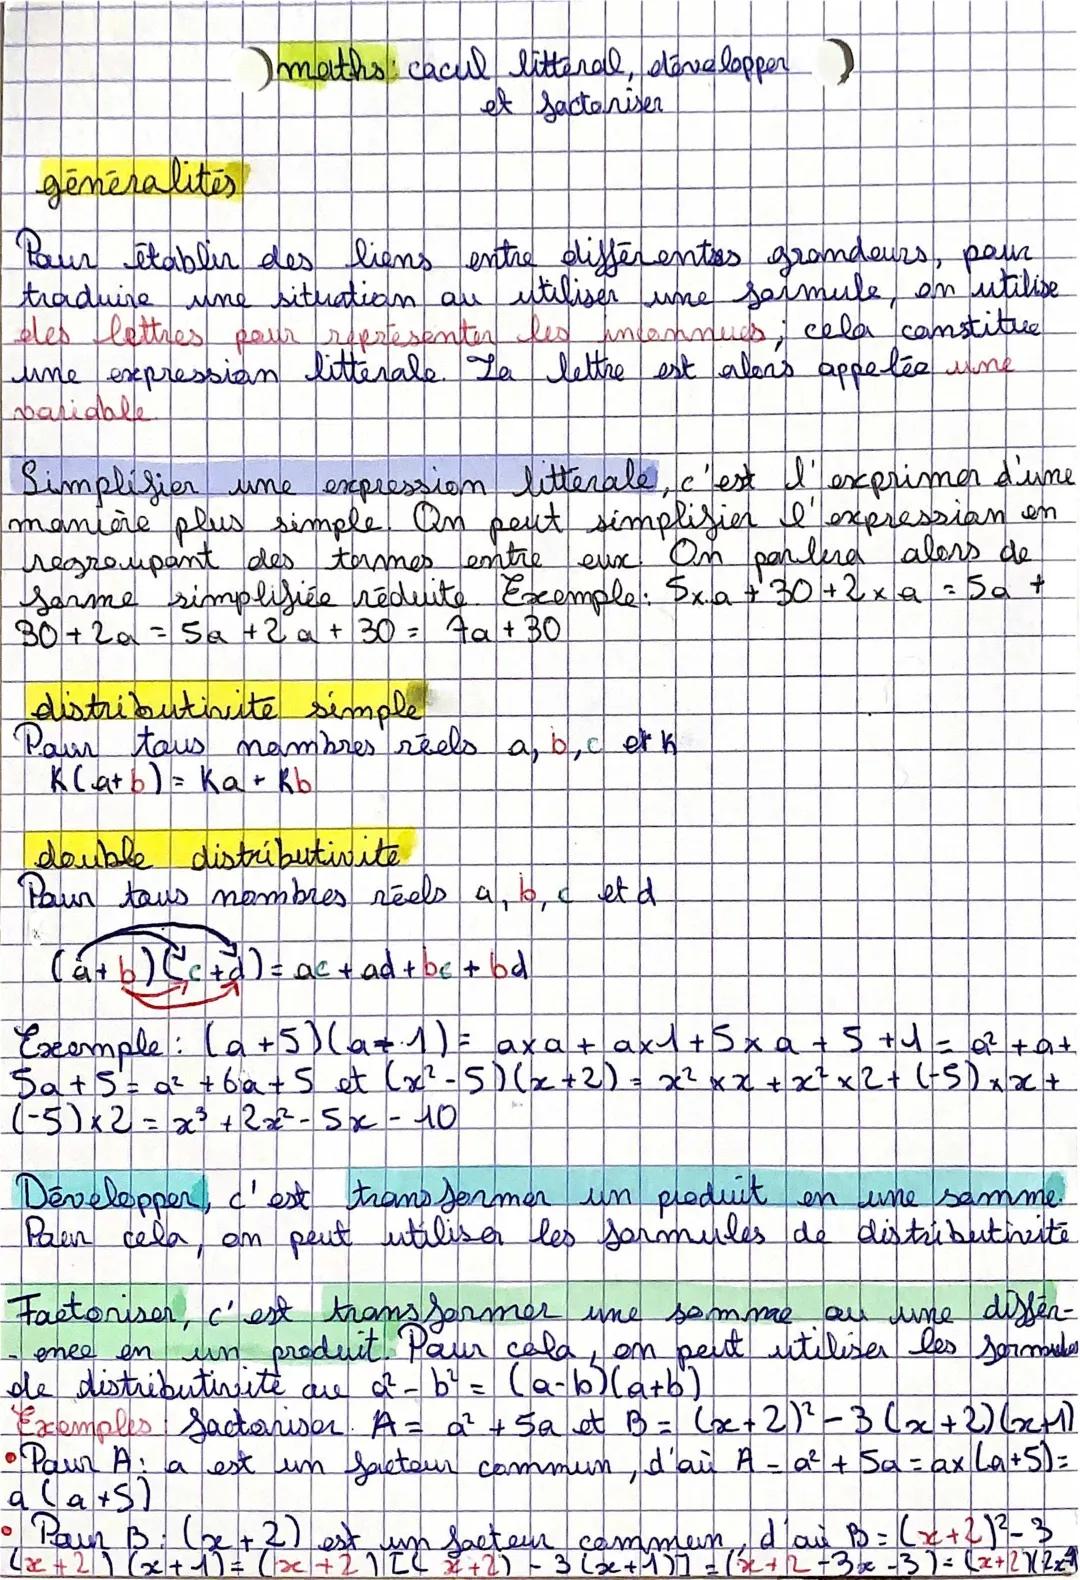 maths : cacul littéral, développer
et factoriser
généralités
Pour établir des liens entre différentes grandeurs, pour
traduire une situation ou utiliser une formule, on utilise
des lettres pour représenter les inconnues ; cela constitue
une expression littérale. La lettre est alors appelée une
variable.
Simplifier une expression litterale, c'est l'exprimer d'une
manière plus simple. On peut simplifier l'expression en
regroupant des termes entre eux. On parlera alors de
forme simplifiée réduite. Exemple : 5xa + 30 + 2 x a = 5a +
30 + 2a = 5a + 2a + 30 = 7a + 30
distributivité simple
Pour tous nombres réels a, b, c et k
K(a+b) = Ka + Kb
double distributivité
Pour tous nombres réels a, b, c et d
(a+b)(c+d) = ac + ad + bc + bd
Exemple : (a+5)(a+1) = axa + ax1 + 5xa + 5 + 1 = a² + a +
5a + 5 = a² + 6a + 5 et (x² - 5)(x + 2) = x² x x + x² x 2 + (-5) x x +
(-5) x 2 = x³ + 2x² - 5x - 10
Développer, c'est transformer un produit en une somme.
Pour cela, on peut utiliser les formules de distributivité
Factoriser, c'est transformer une somme ou une différ-
-ence en un produit. Pour cela, on peut utiliser les formules
de distributivité ou a² - b² = (a-b)(a+b)
Exemples : factoriser A = a² + 5a et B = (x+2)² - 3(x+2)(x+1)
• Pour A : a est un facteur commun, d'où A = a² + 5a = ax(a+5) =
a(a+5)
• Pour B : (x+2) est un facteur commun, d'où B = (x+2)² - 3
(x+2)(x+1) = (x+2)[(x+2) - 3(x+1)] = (x+2 - 3x - 3) = (x+2)(2x